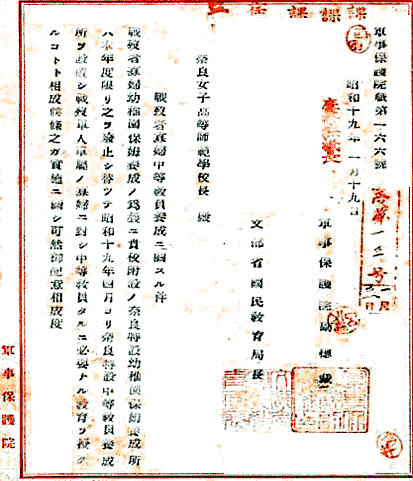 軍事保護院職第一六六號
昭和十九年一月十九日
軍事保護院副總裁
文部省國民教育局長
奈良女子高等師範學校長 殿
戰歿者寡婦中等教員養成ニ關スル件
戰歿者寡婦幼稚園保姆養成ノ爲メニ貴校附設ノ奈良特設幼稚園保姆養成所
ハ本年度限リ之ヲ廢止シ替ツテ昭和十九年四月ヨリ奈良特設中等教員養成
所ヲ設置シ戰歿軍人軍屬ノ寡婦ニ對シ中等教員タルニ必要ナル教育ヲ授ク
ルコトト相成候條之ガ實施ニ關シ可然御配意相成度
軍事保護院